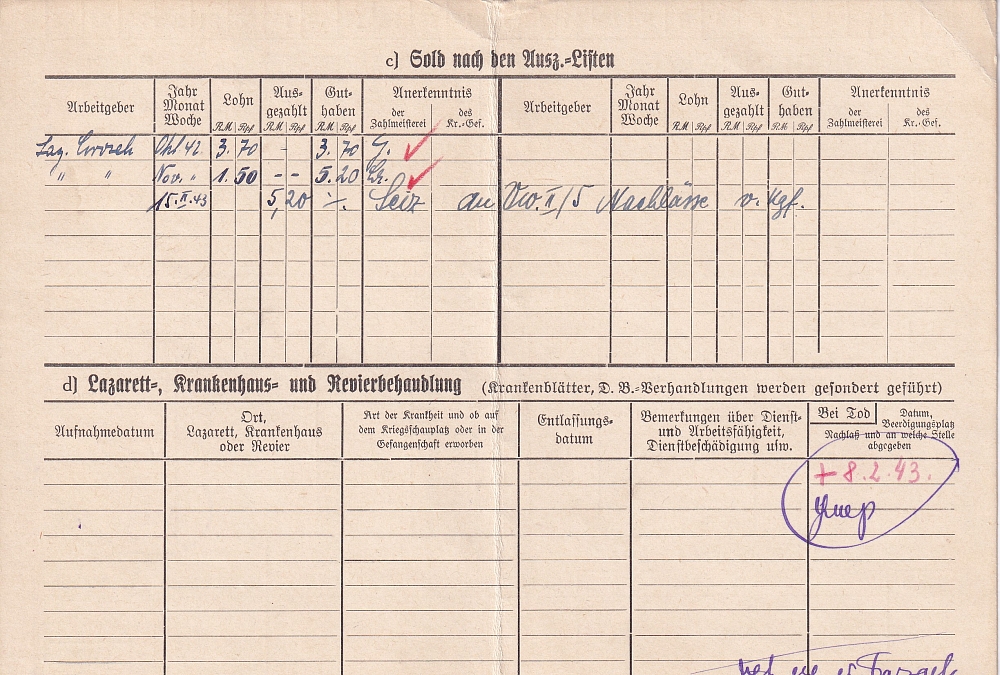 c) Sold nach den Ausz.-Listen
Arbeitgeber Jahr Monat Woche Lohn RM Rpf Ausgezahlt RM Rpf Guthaben RM Rpf Anerkenntnis der Zahlmeisterei des Kr.-Gef. Arbeitgeber Jahr Monat Woche Lohn RM Rpf Ausgezahlt RM Rpf Guthaben RM Rpf Anerkenntnis der Zahlmeisterei des Kr.-Gef.
Lag. Okt 42. 3. 70 - 3. 70
" " Nov. " 1. 50 -- 5. 20
15.II.43 5,20 -.- Seiz an II/5 Nachlässe v. Kgf.
d) Lazarett-, Krankenhaus- und Revierbehandlung (Krankenblätter, D. B.-Verhandlungen werden gesondert geführt)
Aufnahmedatum
Ort,
Lazarett, Krankenhaus
oder Revier
Art der Krankheit und ob auf
dem Kriegsschauplatz oder in der
Gefangenschaft erworben
Entlassungs-
datum
Bemerkungen über Dienst-
und Arbeitsfähigkeit,
Dienstbeschädigung usw.
Bei Tod Datum,
Beerdigungsplatz
Nachlaß und an welche Stelle
abgegeben
+ 8.2.43.
умер